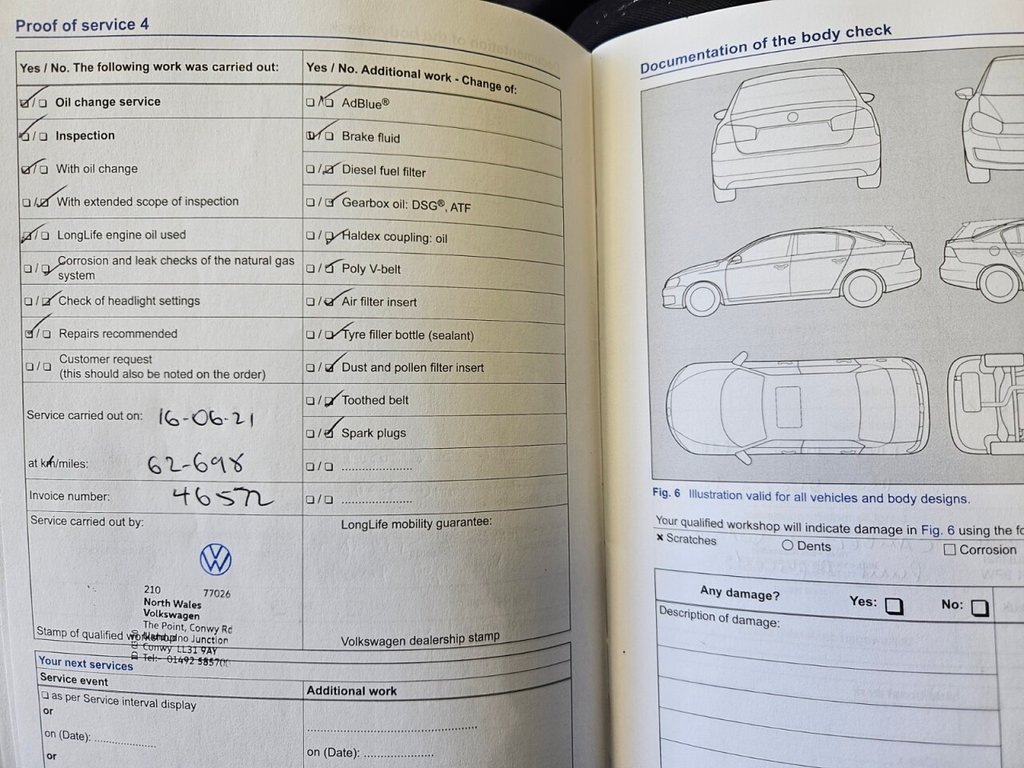 Proof of service 4
Yes / No. The following work was carried out:
Oil change service
Inspection
With oil change
With extended scope of inspection
LongLife engine oil used
Corrosion and leak checks of the natural gas
system
Check of headlight settings
Repairs recommended
Customer request
(this should also be noted on the order)
Service carried out on: 16-06-21
at km/miles: 62-698
Invoice number: 46572
Service carried out by:
210 77026
North Wales
Volkswagen
The Point, Conwy Rd
Llandudno Junction
Conwy LL31 9AY
Tel:- 01492
Stamp of qualified workshop
Yes / No. Additional work - Change of:
AdBlue®
Brake fluid
Diesel fuel filter
Gearbox oil: DSG®, ATF
Haldex coupling: oil
Poly V-belt
Air filter insert
Tyre filler bottle (sealant)
Dust and pollen filter insert
Toothed belt
Spark plugs
LongLife mobility guarantee:
Volkswagen dealership stamp
Your next services
Service event
as per Service interval display
or
on (Date): ..................
or
Additional work
on (Date): ....................
Documentation of the body check
Fig. 6 Illustration valid for all vehicles and body designs.
Your qualified workshop will indicate damage in Fig. 6 using the
× Scratches
Dents
Corrosion
Any damage? Yes: No:
Description of damage: